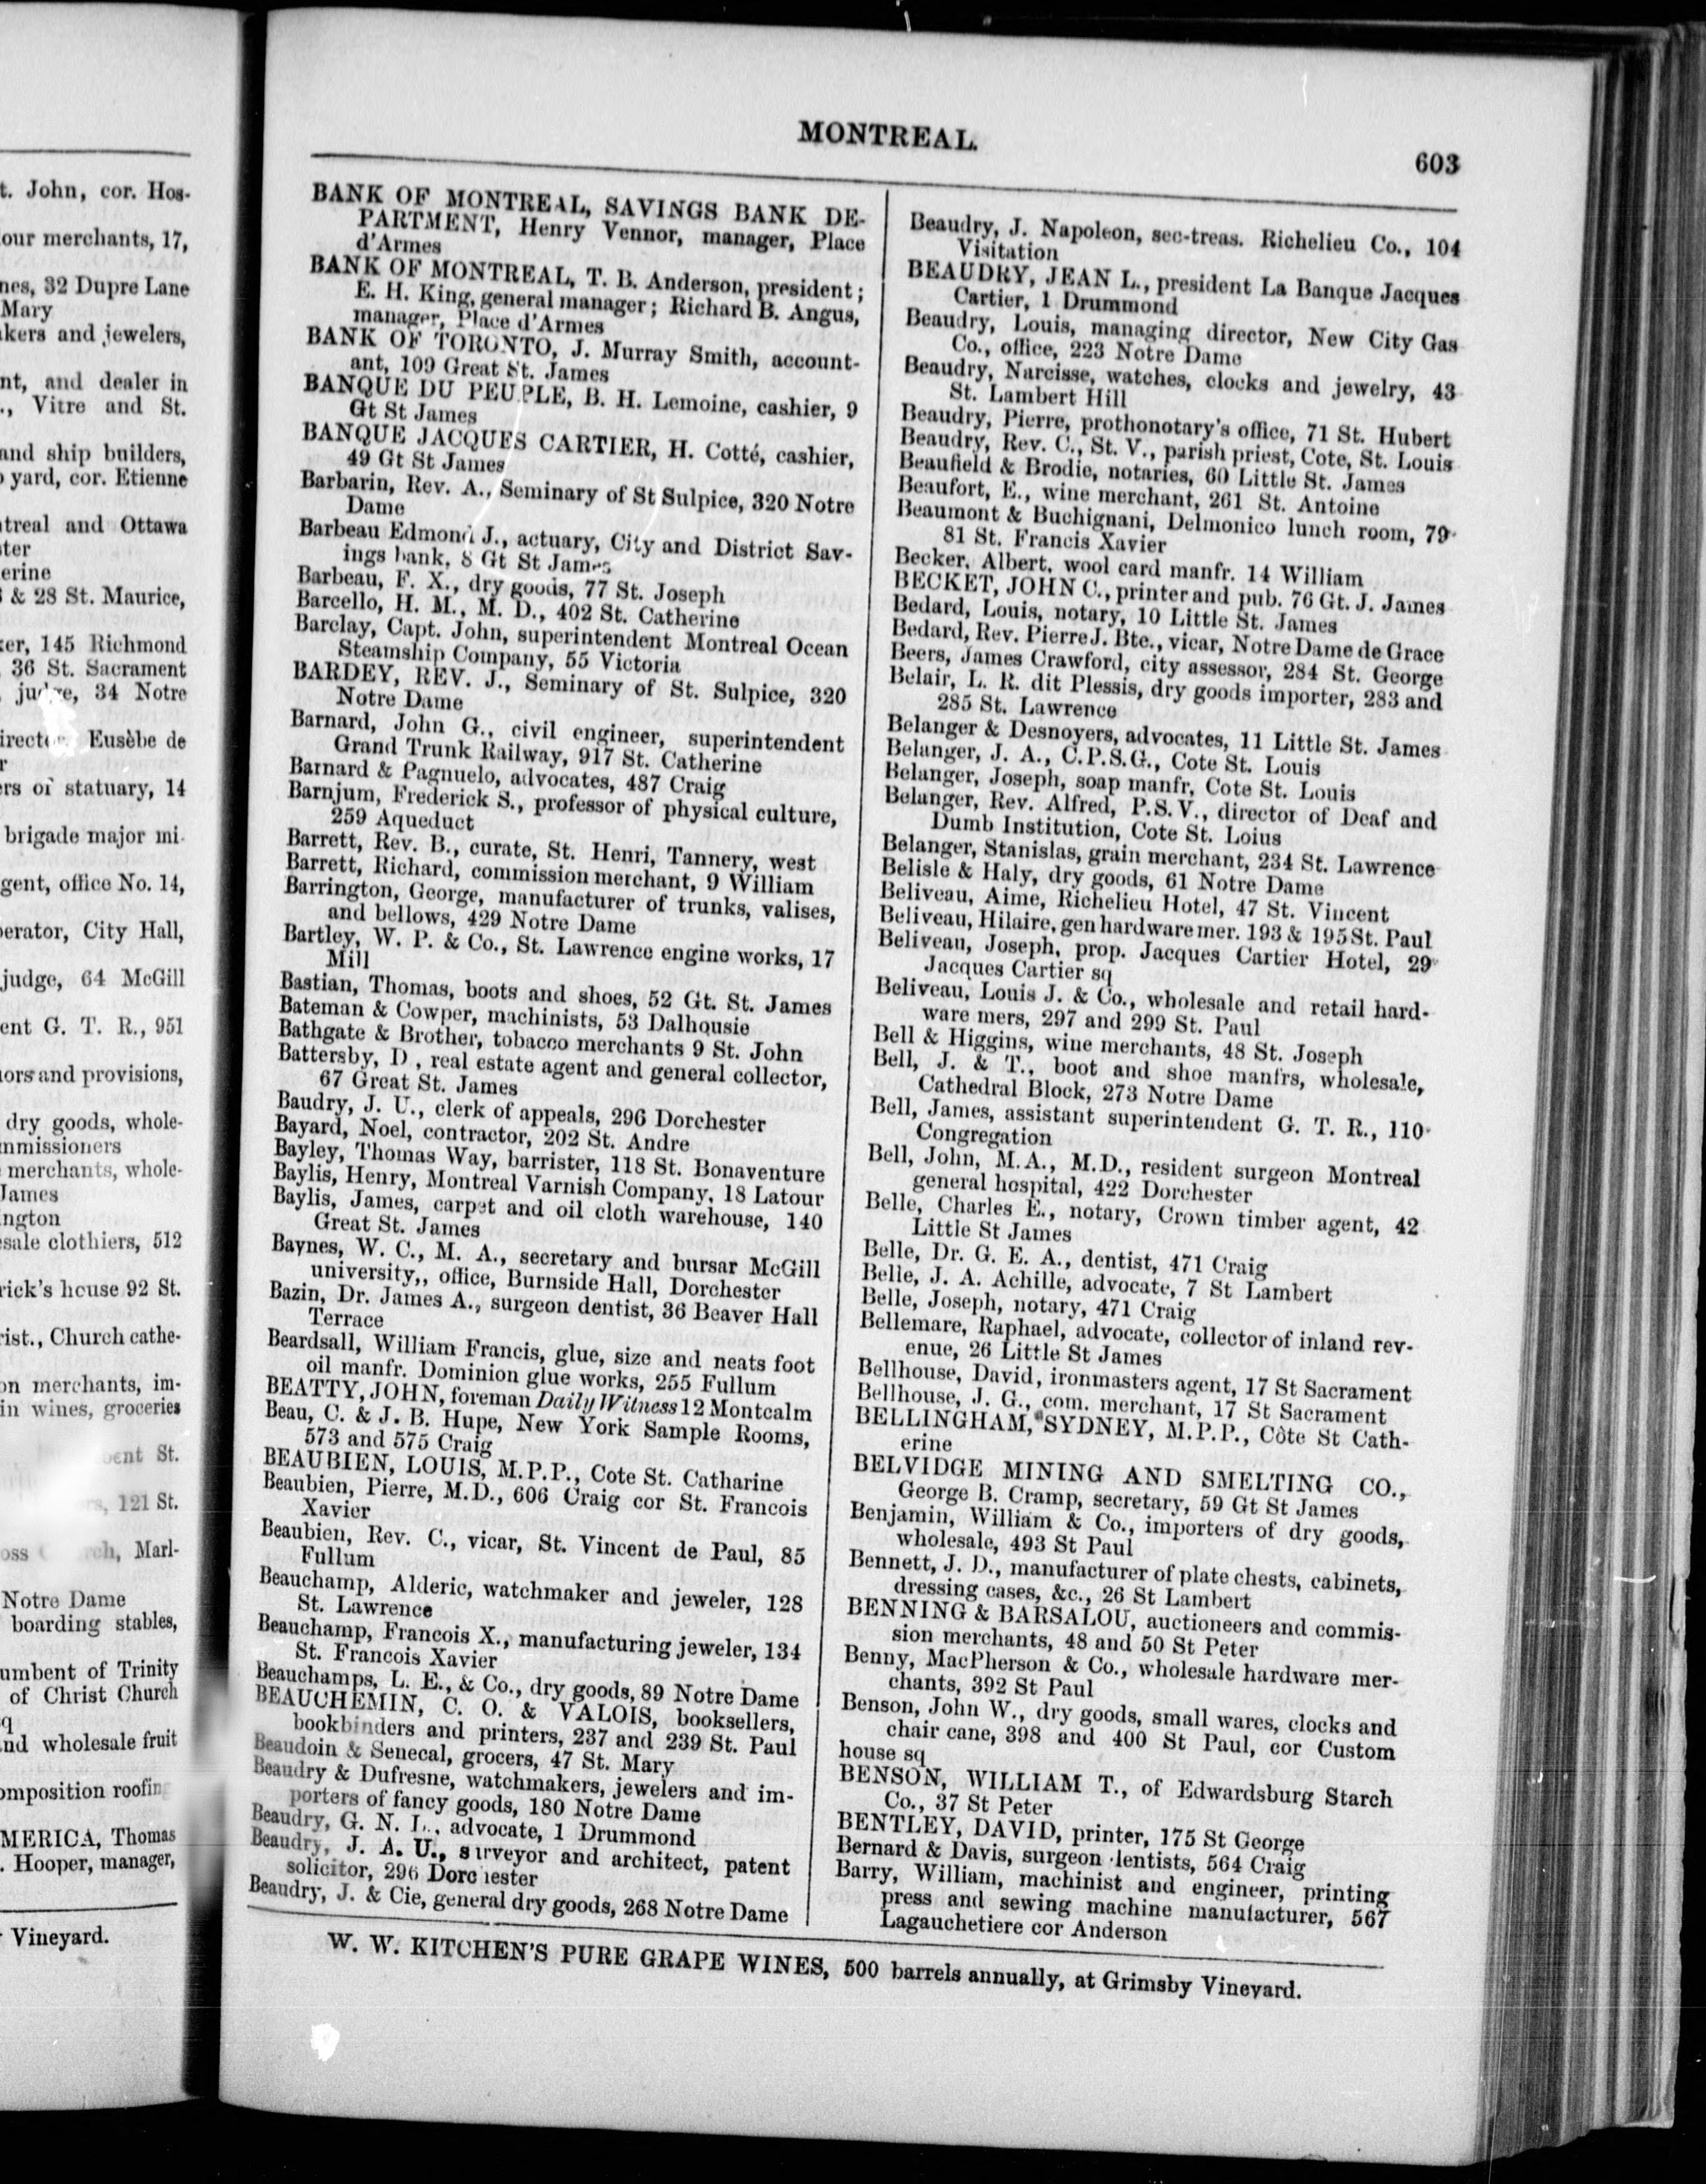 t. John, cor. Hos-
our merchants, 17,
nes, 32 Dupre Lane
Mary
kers and jewelers,
nt, and dealer in
., Vitre and St.
and ship builders,
yard, cor. Etienne
treal and Ottawa
ter
erine
& 28 St. Maurice,
er, 145 Richmond
36 St. Sacrament
judge, 34 Notre
Eusèbe de
r
rs of statuary, 14
brigade major mi-
gent, office No. 14,
erator, City Hall,
judge, 64 McGill
ent G. T. R., 951
ors and provisions,
dry goods, whole-
mmissioners
merchants, whole-
James
ington
sale clothiers, 512
rick's house 92 St.
rist., Church cathe-
on merchants, im-
in wines, groceries
St.
121 St.
Marl-
Notre Dame
boarding stables,
umbent of Trinity
of Christ Church
q
nd wholesale fruit
omposition roofing
MERICA, Thomas
. Hooper, manager,
Vineyard.
MONTREAL.
603
BANK OF MONTREAL, SAVINGS BANK DE-
PARTMENT, Henry Vennor, manager, Place
d'Armes
BANK OF MONTREAL, T. B. Anderson, president;
E. H. King, general manager; Richard B. Angus,
manager, Place d'Armes
BANK OF TORONTO, J. Murray Smith, account-
ant, 109 Great St. James
BANQUE DU PEUPLE, B. H. Lemoine, cashier, 9
Gt St James
BANQUE JACQUES CARTIER, H. Cotté, cashier,
49 Gt St James
Barbarin, Rev. A., Seminary of St Sulpice, 320 Notre
Dame
Barbeau Edmond J., actuary, City and District Sav-
ings bank, 8 Gt St James
Barbeau, F. X., dry goods, 77 St. Joseph
Barcello, H. M., M. D., 402 St. Catherine
Barclay, Capt. John, superintendent Montreal Ocean
Steamship Company, 55 Victoria
BARDEY, REV. J., Seminary of St. Sulpice, 320
Notre Dame
Barnard, John G., civil engineer, superintendent
Grand Trunk Railway, 917 St. Catherine
Barnard & Pagnuelo, advocates, 487 Craig
Barnjum, Frederick S., professor of physical culture,
259 Aqueduct
Barrett, Rev. B., curate, St. Henri, Tannery, west
Barrett, Richard, commission merchant, 9 William
Barrington, George, manufacturer of trunks, valises,
and bellows, 429 Notre Dame
Bartley, W. P. & Co., St. Lawrence engine works, 17
Mill
Bastian, Thomas, boots and shoes, 52 Gt. St. James
Bateman & Cowper, machinists, 53 Dalhousie
Bathgate & Brother, tobacco merchants 9 St. John
Battersby, D , real estate agent and general collector,
67 Great St. James
Baudry, J. U., clerk of appeals, 296 Dorchester
Bayard, Noel, contractor, 202 St. Andre
Bayley, Thomas Way, barrister, 118 St. Bonaventure
Baylis, Henry, Montreal Varnish Company, 18 Latour
Baylis, James, carpet and oil cloth warehouse, 140
Great St. James
Baynes, W. C., M. A., secretary and bursar McGill
university,, office, Burnside Hall, Dorchester
Bazin, Dr. James A., surgeon dentist, 36 Beaver Hall
Terrace
Beardsall, William Francis, glue, size and neats foot
oil manfr. Dominion glue works, 255 Fullum
BEATTY, JOHN, foreman Daily Witness 12 Montcalm
Beau, C. & J. B. Hupe, New York Sample Rooms,
573 and 575 Craig
BEAUBIEN, LOUIS, M.P.P., Cote St. Catharine
Beaubien, Pierre, M.D., 606 Craig cor St. Francois
Xavier
Beaubien, Rev. C., vicar, St. Vincent de Paul, 85
Fullum
Beauchamp, Alderic, watchmaker and jeweler, 128
St. Lawrence
Beauchamp, Francois X., manufacturing jeweler, 134
St. Francois Xavier
Beauchamps, L. E., & Co., dry goods, 89 Notre Dame
BEAUCHEMIN, C. O. & VALOIS, booksellers,
bookbinders and printers, 237 and 239 St. Paul
Beaudoin & Senecal, grocers, 47 St. Mary
Beaudry & Dufresne, watchmakers, jewelers and im-
porters of fancy goods, 180 Notre Dame
Beaudry, G. N. L., advocate, 1 Drummond
Beaudry, J. A. U., surveyor and architect, patent
solicitor, 296 Dorchester
Beaudry, J. & Cie, general dry goods, 268 Notre Dame
Beaudry, J. Napoleon, sec-treas. Richelieu Co., 104
Visitation
BEAUDRY, JEAN L., president La Banque Jacques
Cartier, 1 Drummond
Beaudry, Louis, managing director, New City Gas
Co., office, 223 Notre Dame
Beaudry, Narcisse, watches, clocks and jewelry, 43
St. Lambert Hill
Beaudry, Pierre, prothonotary's office, 71 St. Hubert
Beaudry, Rev. C., St. V., parish priest, Cote, St. Louis
Beaufield & Brodie, notaries, 60 Little St. James
Beaufort, E., wine merchant, 261 St. Antoine
Beaumont & Buchignani, Delmonico lunch room, 79
81 St. Francis Xavier
Becker, Albert, wool card manfr. 14 William
BECKET, JOHN C., printer and pub. 76 Gt. J. James
Bedard, Louis, notary, 10 Little St. James
Bedard, Rev. Pierre J. Bte., vicar, Notre Dame de Grace
Beers, James Crawford, city assessor, 284 St. George
Belair, L. R. dit Plessis, dry goods importer, 283 and
285 St. Lawrence
Belanger & Desnoyers, advocates, 11 Little St. James
Belanger, J. A., C.P.S.G., Cote St. Louis
Belanger, Joseph, soap manfr, Cote St. Louis
Belanger, Rev. Alfred, P.S.V., director of Deaf and
Dumb Institution, Cote St. Loius
Belanger, Stanislas, grain merchant, 234 St. Lawrence
Belisle & Haly, dry goods, 61 Notre Dame
Beliveau, Aime, Richelieu Hotel, 47 St. Vincent
Beliveau, Hilaire, gen hardware mer. 193 & 195 St. Paul
Beliveau, Joseph, prop. Jacques Cartier Hotel, 29
Jacques Cartier sq
Beliveau, Louis J. & Co., wholesale and retail hard-
ware mers, 297 and 299 St. Paul
Bell & Higgins, wine merchants, 48 St. Joseph
Bell, J. & T., boot and shoe manfrs, wholesale,
Cathedral Block, 273 Notre Dame
Bell, James, assistant superintendent G. T. R., 110
Congregation
Bell, John, M.A., M.D., resident surgeon Montreal
general hospital, 422 Dorchester
Belle, Charles E., notary, Crown timber agent, 42
Little St James
Belle, Dr. G. E. A., dentist, 471 Craig
Belle, J. A. Achille, advocate, 7 St Lambert
Belle, Joseph, notary, 471 Craig
Bellemare, Raphael, advocate, collector of inland rev-
enue, 26 Little St James
Bellhouse, David, ironmasters agent, 17 St Sacrament
Bellhouse, J. G., com. merchant, 17 St Sacrament
BELLINGHAM, SYDNEY, M.P.P., Côte St Cath-
erine
BELVIDGE MINING AND SMELTING CO.,
George B. Cramp, secretary, 59 Gt St James
Benjamin, William & Co., importers of dry goods,
wholesale, 493 St Paul
Bennett, J. D., manufacturer of plate chests, cabinets,
dressing cases, &c., 26 St Lambert
BENNING & BARSALOU, auctioneers and commis-
sion merchants, 48 and 50 St Peter
Benny, MacPherson & Co., wholesale hardware mer-
chants, 392 St Paul
Benson, John W., dry goods, small wares, clocks and
chair cane, 398 and 400 St Paul, cor Custom
house sq
BENSON, WILLIAM T., of Edwardsburg Starch
Co., 37 St Peter
BENTLEY, DAVID, printer, 175 St George
Bernard & Davis, surgeon dentists, 564 Craig
Barry, William, machinist and engineer, printing
press and sewing machine manufacturer, 567
Lagauchetiere cor Anderson
W. W. KITCHEN'S PURE GRAPE WINES, 500 barrels annually, at Grimsby Vineyard.